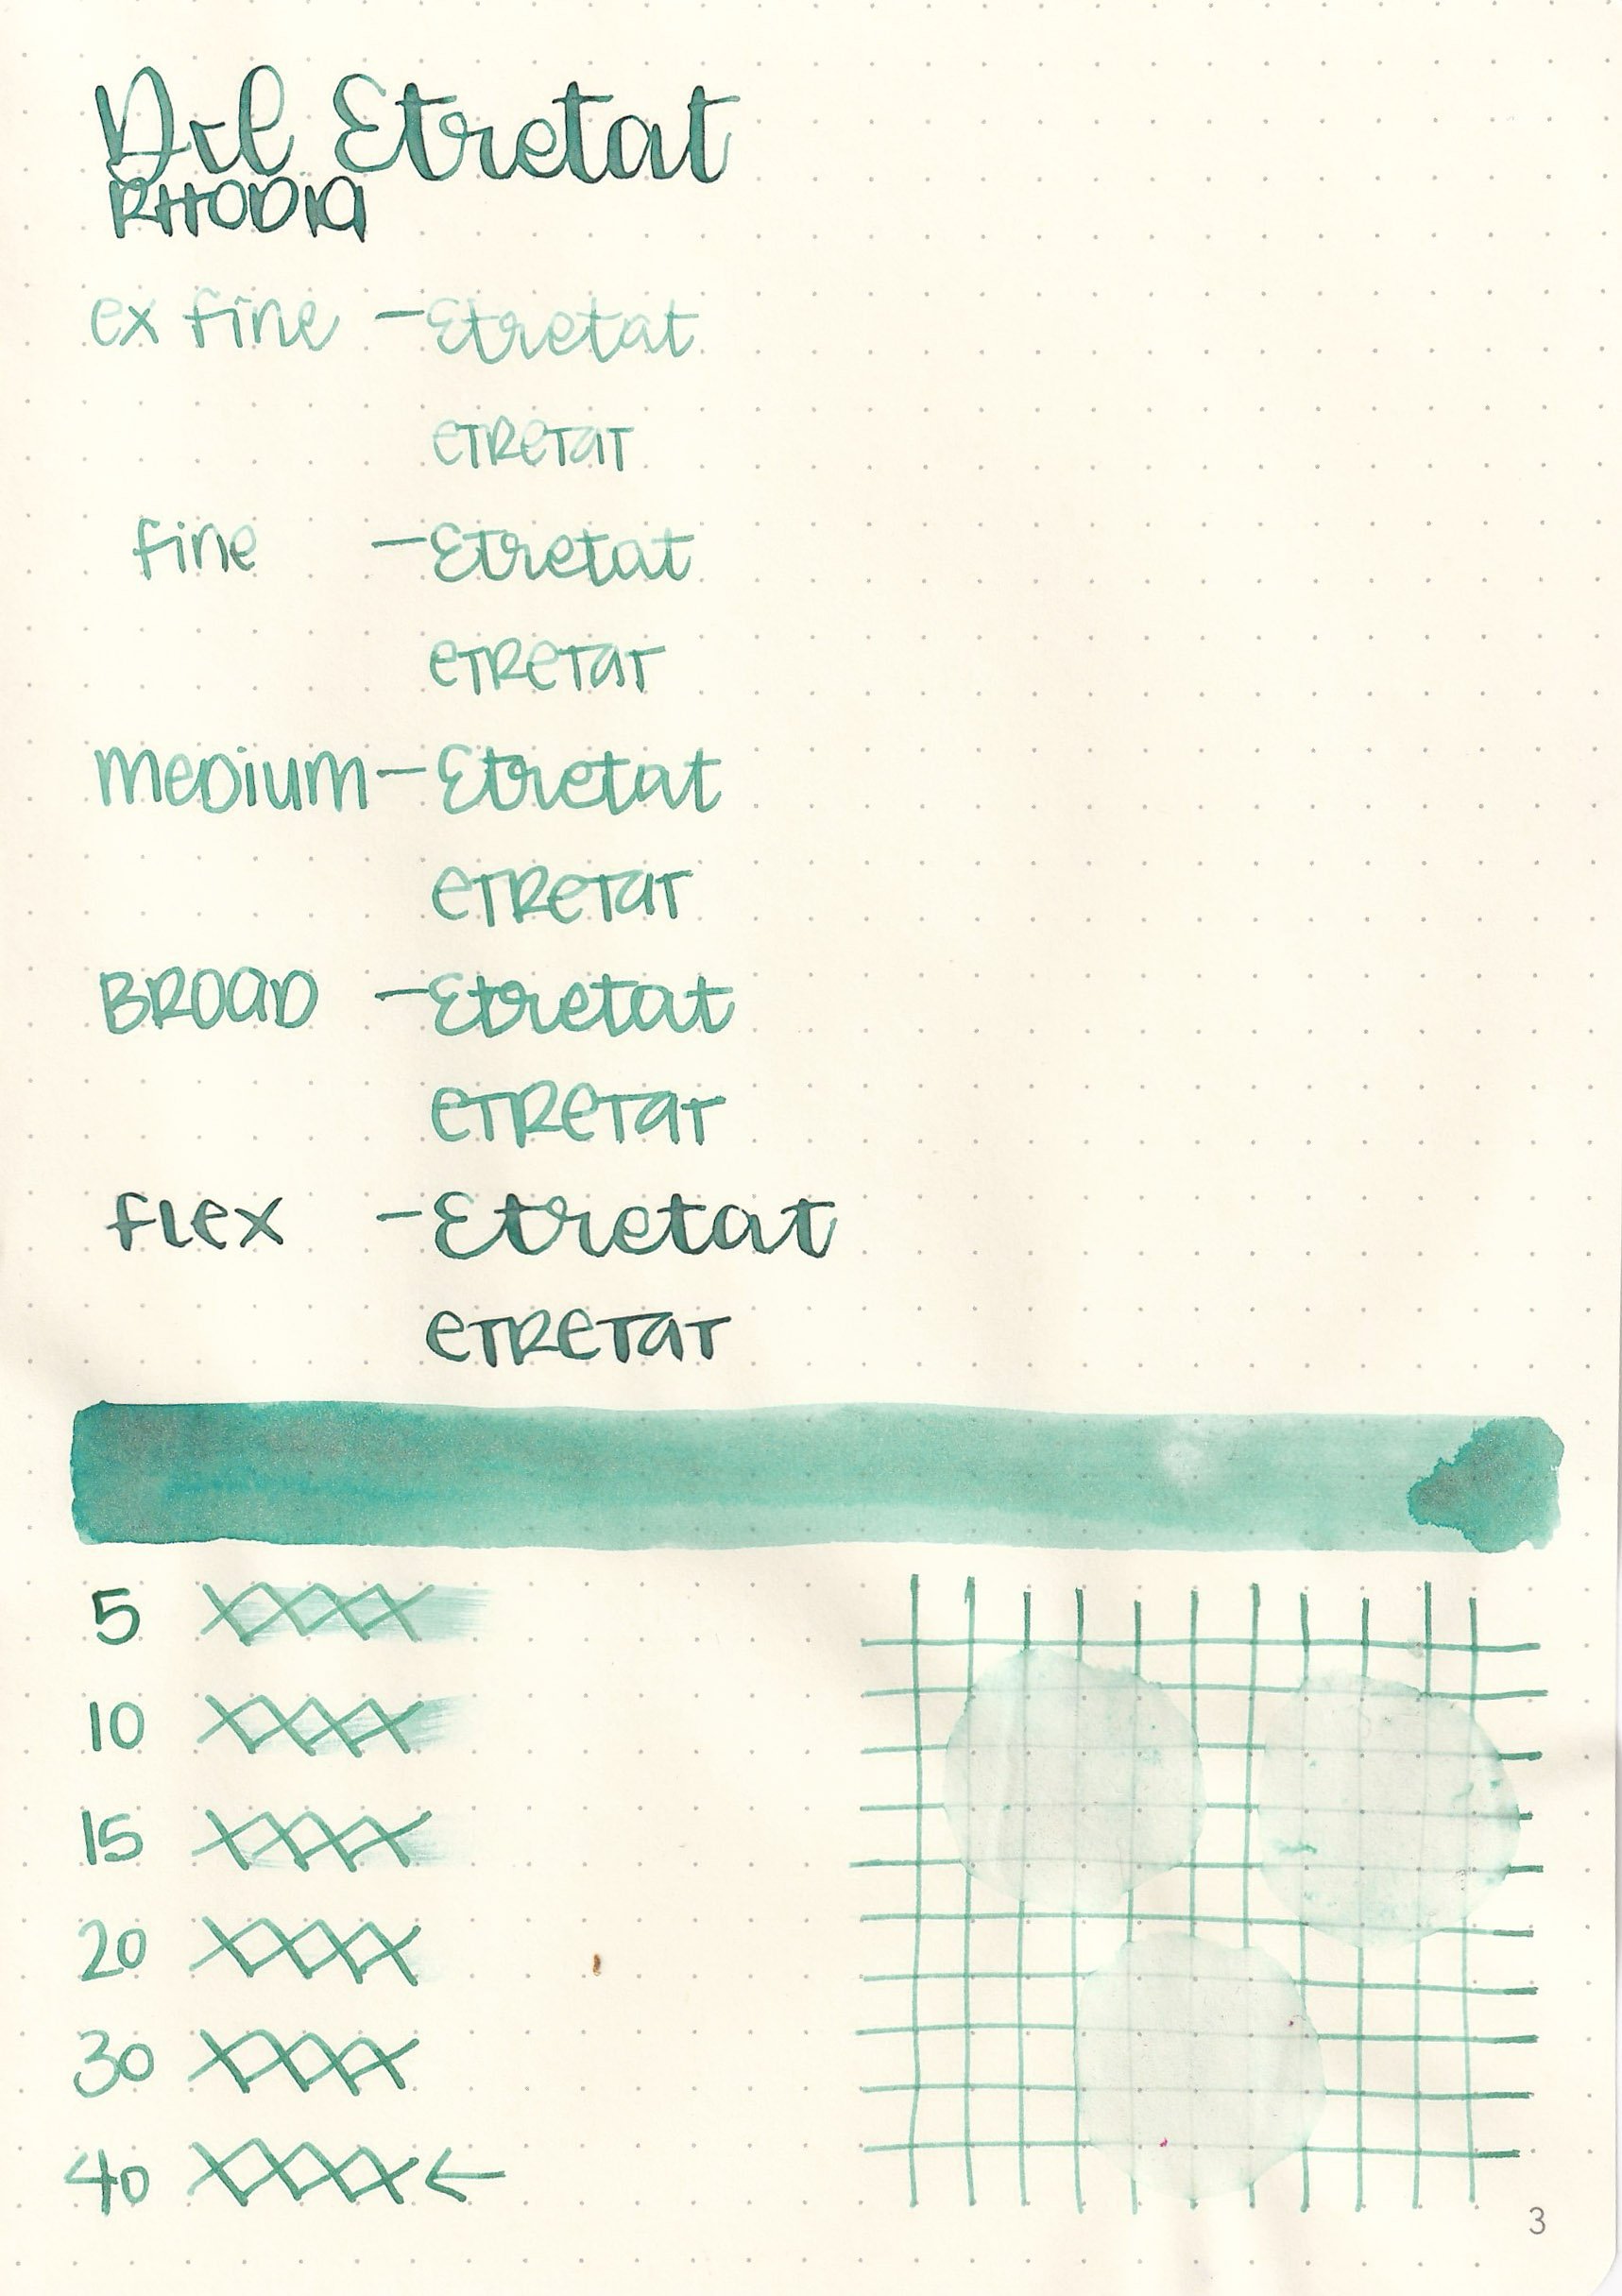 Drl Etretat
RHODIA
ex fine - Etretat
eTReTaT
fine - Etretat
eTReTaT
meDium - Etretat
eTReTaT
BROaD - Etretat
eTReTaT
flex - Etretat
eTReTaT
5
10
15
20
30
40 ←
3